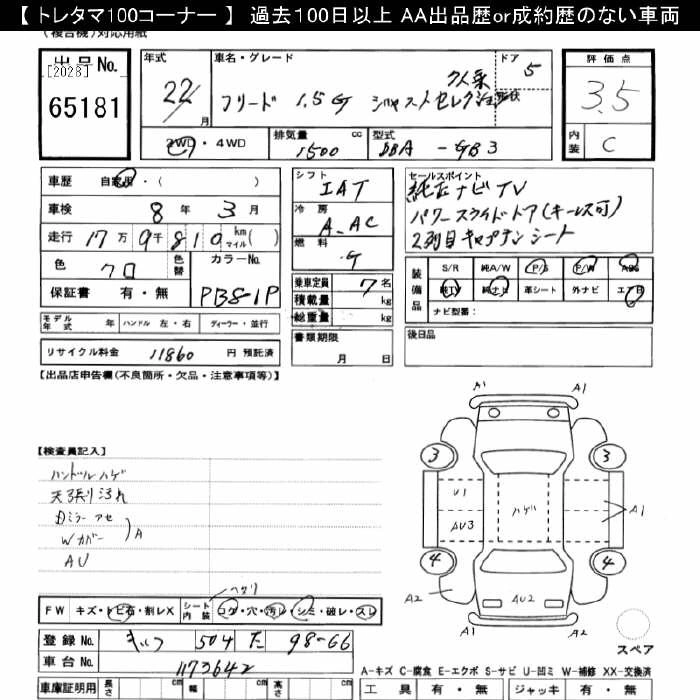 【 トレタマ100コーナー 】 過去100日以上 AA出品歴or成約歴のない車両
(複合機)対応用紙
出品No.
[2028]
65181
年式
22/
月
車名・グレード
フリード 1.5G ジャストセレクション
ドア
5
形状
評価点
3.5
内装
C
2WD・4WD
排気量
cc
1500
型式
DBA-GB3
車歴 自家用・( )
車検 8年 3月
走行 17万 9千 810 km マイル( )
色 クロ
色替
カラーNo.
PB81P
保証書 有・無
シフト
IAT
冷房
A-AC
燃料
G
乗車定員 7名
積載量 kg
総重量 kg
セールスポイント
純正ナビTV
パワースライドドア(キーレス可)
2列目キャプテンシート
装備品
S/R 純A/W P/S P/W ABS
純TV 純ナビ 革シート 外ナビ エアB
ナビ型番:
モデル年式 年 ハンドル 左・右 ディーラー・並行
書類期限
月 日
後日品
リサイクル料金 11860 円 預託済
【出品店申告欄(不良箇所・欠品・注意事項等)】
【検査員記入】
ハンドルハゲ
天張り汚れ
Dミラー アセ
Wカバー
A
AU
A1
A1
3
3
U1
AU3
ハゲ
A1
4
4
A2
AU2
A2
スペア
FW キズ・トビ石・割レX
シート内装
コゲ・穴・汚レ・シミ・破レ・スレ
登録No.
504 た 98-66
車台No.
1173642
車庫証明用 長さ cm 幅 cm 高さ cm
A-キズ C-腐食 E-エクボ S-サビ U-凹ミ W-補修 XX-交換済
工具 有・無 ジャッキ 有・無